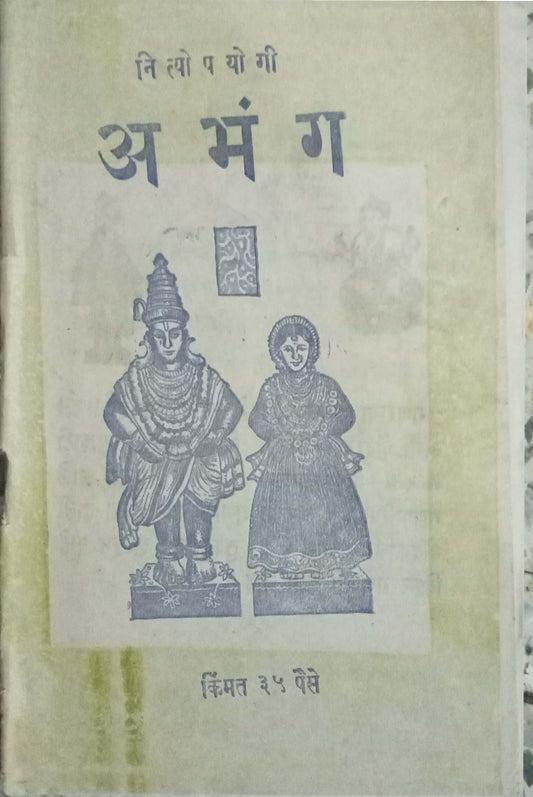 नित्योपयोगी
अभंग
किंमत ३५ पैसे